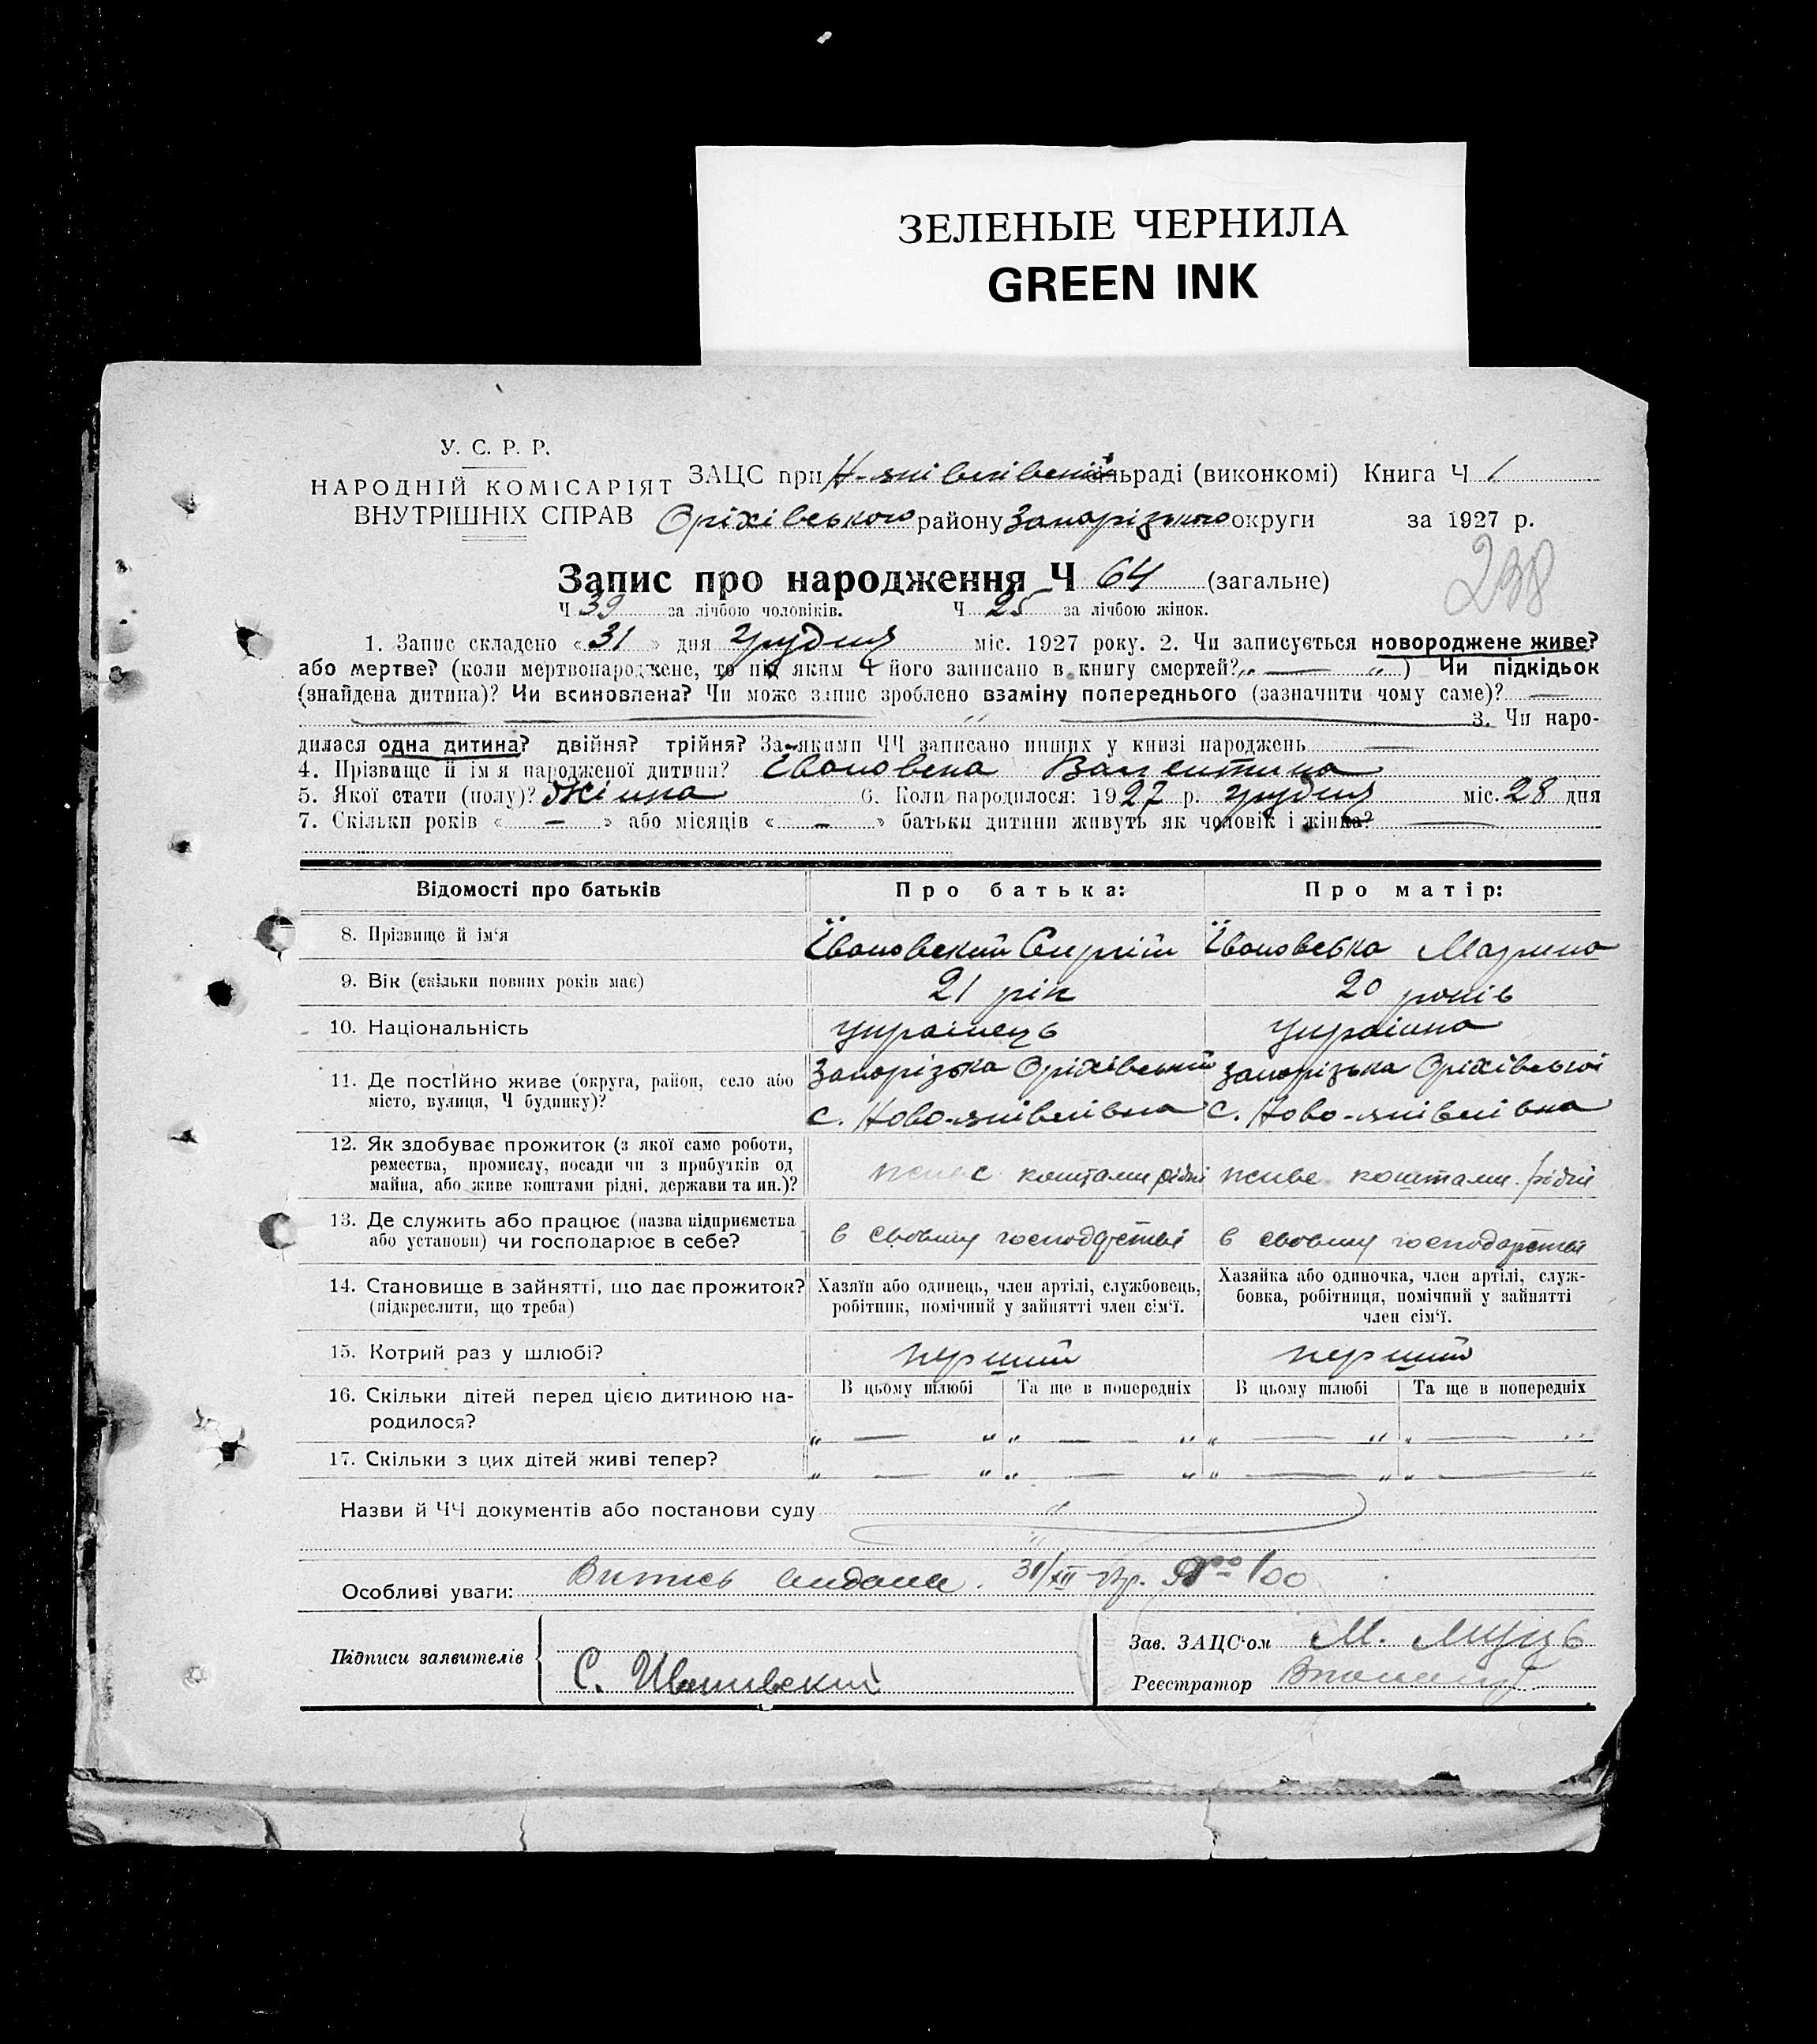 ЗЕЛЕНЫЕ ЧЕРНИЛА
GREEN INK
У. С. Р. Р.
НАРОДНІЙ КОМІСАРІЯТ
ВНУТРІШНІХ СПРАВ
ЗАЦС при сільраді (виконкомі) Книга Ч 1
Оріхівського району Запорізького округи за 1927 р.
238
Запис про народження Ч 64 (загальне)
Ч 39 за лічбою чоловіків. Ч 25 за лічбою жінок.
1. Запис складено « 31 » дня грудня міс. 1927 року. 2. Чи записується новороджене живе?
або мертве? (коли мертвонароджене, то під яким Ч його записано в книгу смертей? „ — “ ) Чи підкідьок
(знайдена дитина)? Чи всиновлена? Чи може запис зроблено взаміну попереднього (зазначити чому саме)? —
3. Чи наро-
дилася одна дитина? двійня? трійня? За якими ЧЧ записано инших у книзі народжень —
4. Прізвище й ім'я народженої дитини? Валентина
5. Якої стати (полу)? Жіноча 6. Коли народилося: 1927 р. грудня міс. 28 дня
7. Скільки років « — » або місяців « — » батьки дитини живуть як чоловік і жінка? —
Відомості про батьків Про батька: Про матір:
8. Прізвище й ім'я Івановський Сергій Івановська Марина
9. Вік (скільки повних років має) 21 рік 20 років
10. Національність українець українка
11. Де постійно живе (округа, район, село або місто, вулиця, Ч будинку)?
Запорізька Оріхівський Запорізька Оріхівської
с. Ново- с. Ново-
12. Як здобуває прожиток (з якої саме роботи,
ремества, промислу, посади чи з прибутків од
майна, або живе коштами рідні, держави та ин.)?
живе коштами рідні живе коштами рідні
13. Де служить або працює (назва підприємства
або установи) чи господарює в себе?
в своєму господарстві в своєму господарстві
14. Становище в зайнятті, що дає прожиток?
(підкреслити, що треба)
Хазяїн або одинець, член артілі, службовець,
робітник, помічний у зайнятті член сім'ї.
Хазяйка або одиночка, член артілі, служ-
бовка, робітниця, помічний у зайнятті
член сім'ї.
15. Котрий раз у шлюбі? перший перший
16. Скільки дітей перед цією дитиною на-
родилося?
В цьому шлюбі Та ще в попередніх В цьому шлюбі Та ще в попередніх
„ — “ „ — “ „ — “ „ — “
17. Скільки з цих дітей живі тепер?
„ — “ „ — “ „ — “ „ — “
Назви й ЧЧ документів або постанови суду
Особливі уваги: Витись видана. 31/XII
Підписи заявителів
Зав. ЗАЦС'ом М.
Реєстратор